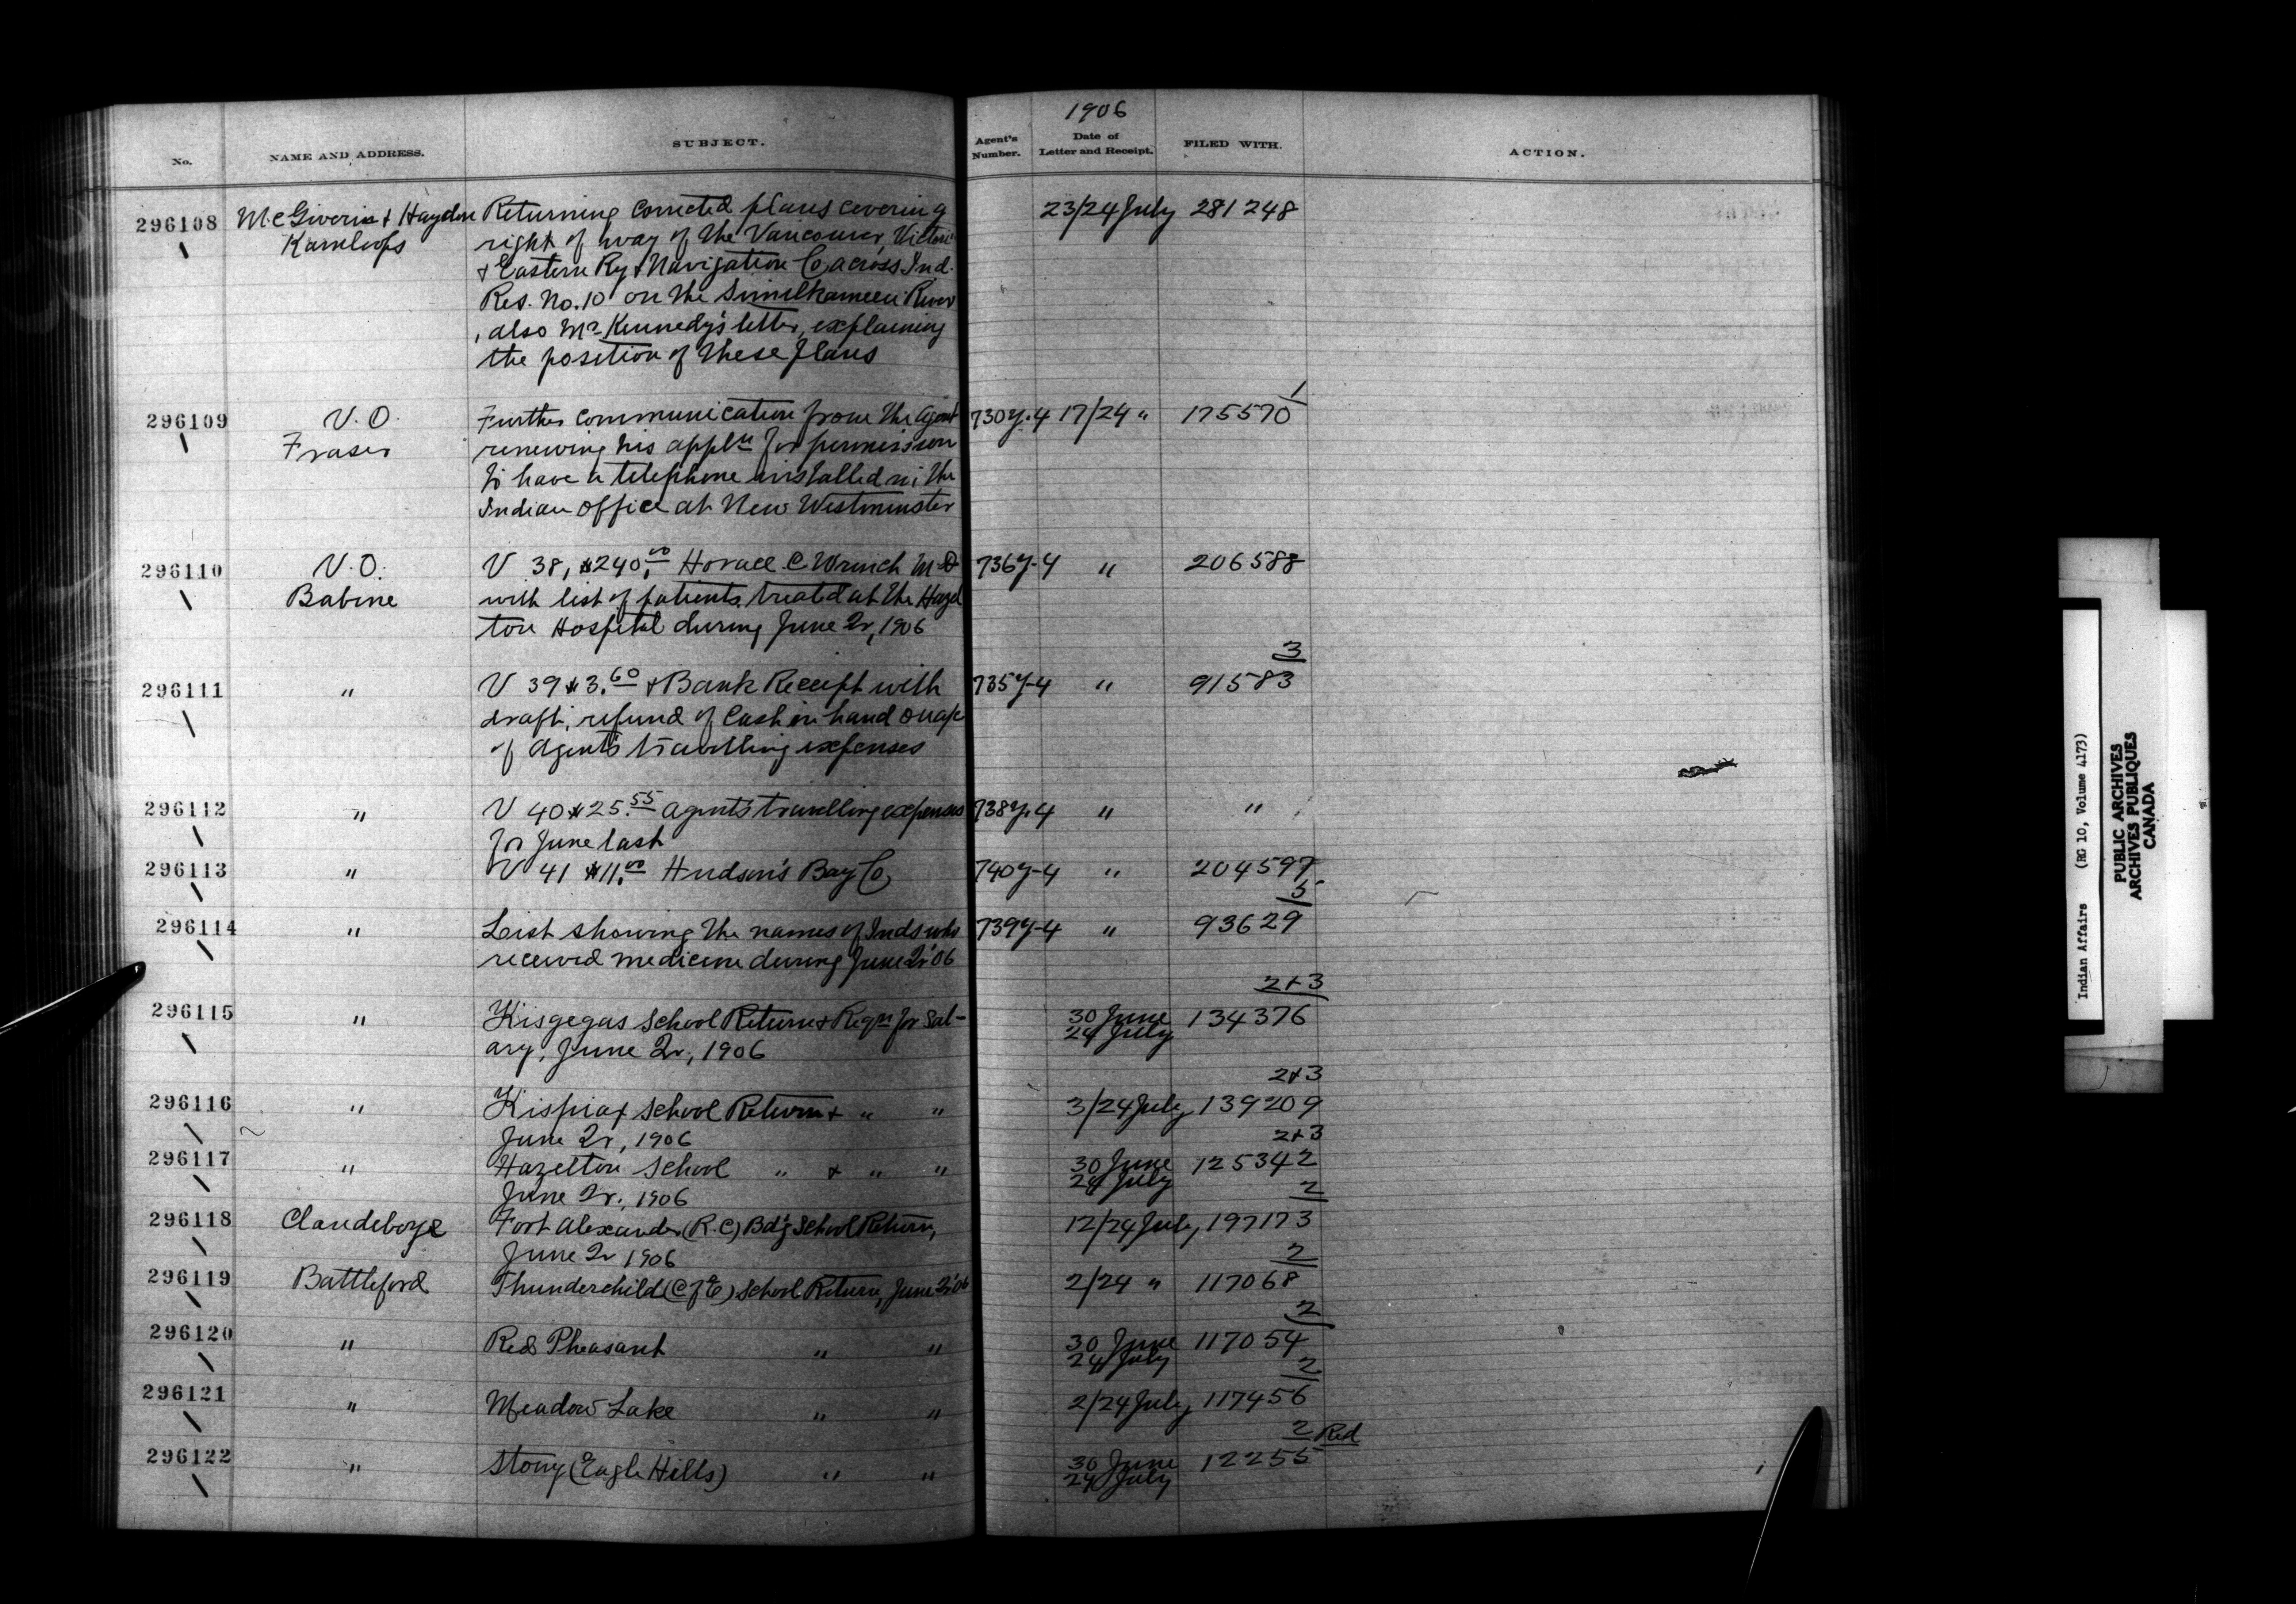 1906
No. NAME AND ADDRESS. SUBJECT. Agent's Number. Date of Letter and Receipt. FILED WITH. ACTION.
296108 McGiverin & Haydon Returning corrected plans covering 23/24 July 281248
Kamloops right of way of the Vancouver, Victoria
& Eastern Ry & Navigation Co across Ind.
Res. No. 10 on the Similkameen River
, also Mr Kennedy's letter, explaining
the position of these plans
296109 V.O. Further communication from the Agent 730y-4 17/24 " 175570 1
Fraser renewing his appln for permission
to have a telephone installed in the
Indian Office at New Westminster
296110 V.O. V 38, $240.00 Horace C. Wrinch M.D 736y-4 " 206588
Babine with list of patients treated at the Hazel
ton Hospital during June Qr, 1906
3
296111 " V 39 $3.60 & Bank Receipt with 735y-4 " 91583
draft, refund of Cash in hand on a/c
of Agent's travelling expenses
296112 " V 40 $25.55 Agent's travelling expenses 738y-4 " "
for June last
296113 " V 41 $11.00 Hudson's Bay Co, 740y-4 " 204597
5
296114 " List showing the names of Inds who 739y-4 " 93629
received medicine during June Qr '06
2+3
296115 " Kisgegas School Return & Reqn for Sal- 30 June 134376
24 July
ary, June Qr, 1906
2+3
296116 " Kispiax School Return & " " 3/24 July 139209
June Qr, 1906
2+3
296117 " Hazelton School " & " " 30 June 125342
24 July
June Qr. 1906
2
296118 Clandeboye Fort Alexander (R.C) Bd'g School Return, 12/24 July 197173
June Qr 1906
2
296119 Battleford Thunderchild (C of E) School Return, June Qr '06 2/24 " 117068
2
296120 " Red Pheasant " " 30 June 117054
24 July
2
296121 " Meadow Lake " " 2/24 July 117456
2 Red
296122 " Stony (Eagle Hills) " " 30 June 12255
24 July
Indian Affairs (RG 10, Volume 4173)
PUBLIC ARCHIVES
ARCHIVES PUBLIQUES
CANADA